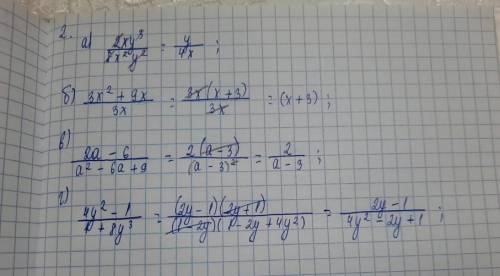 2.
а) 2xy³/8x²y² = y/4x ;
б) 3x² + 9x/3x = 3x(x+3)/3x = (x+3) ;
в) 2a - 6/a² - 6a + 9 = 2(a-3)/(a-3)² = 2/a-3 ;
г) 4y² - 1/1 + 8y³ = (2y-1)(2y+1)/(1-2y)(1-2y+4y²) = 2y-1/4y²-2y+1 ;